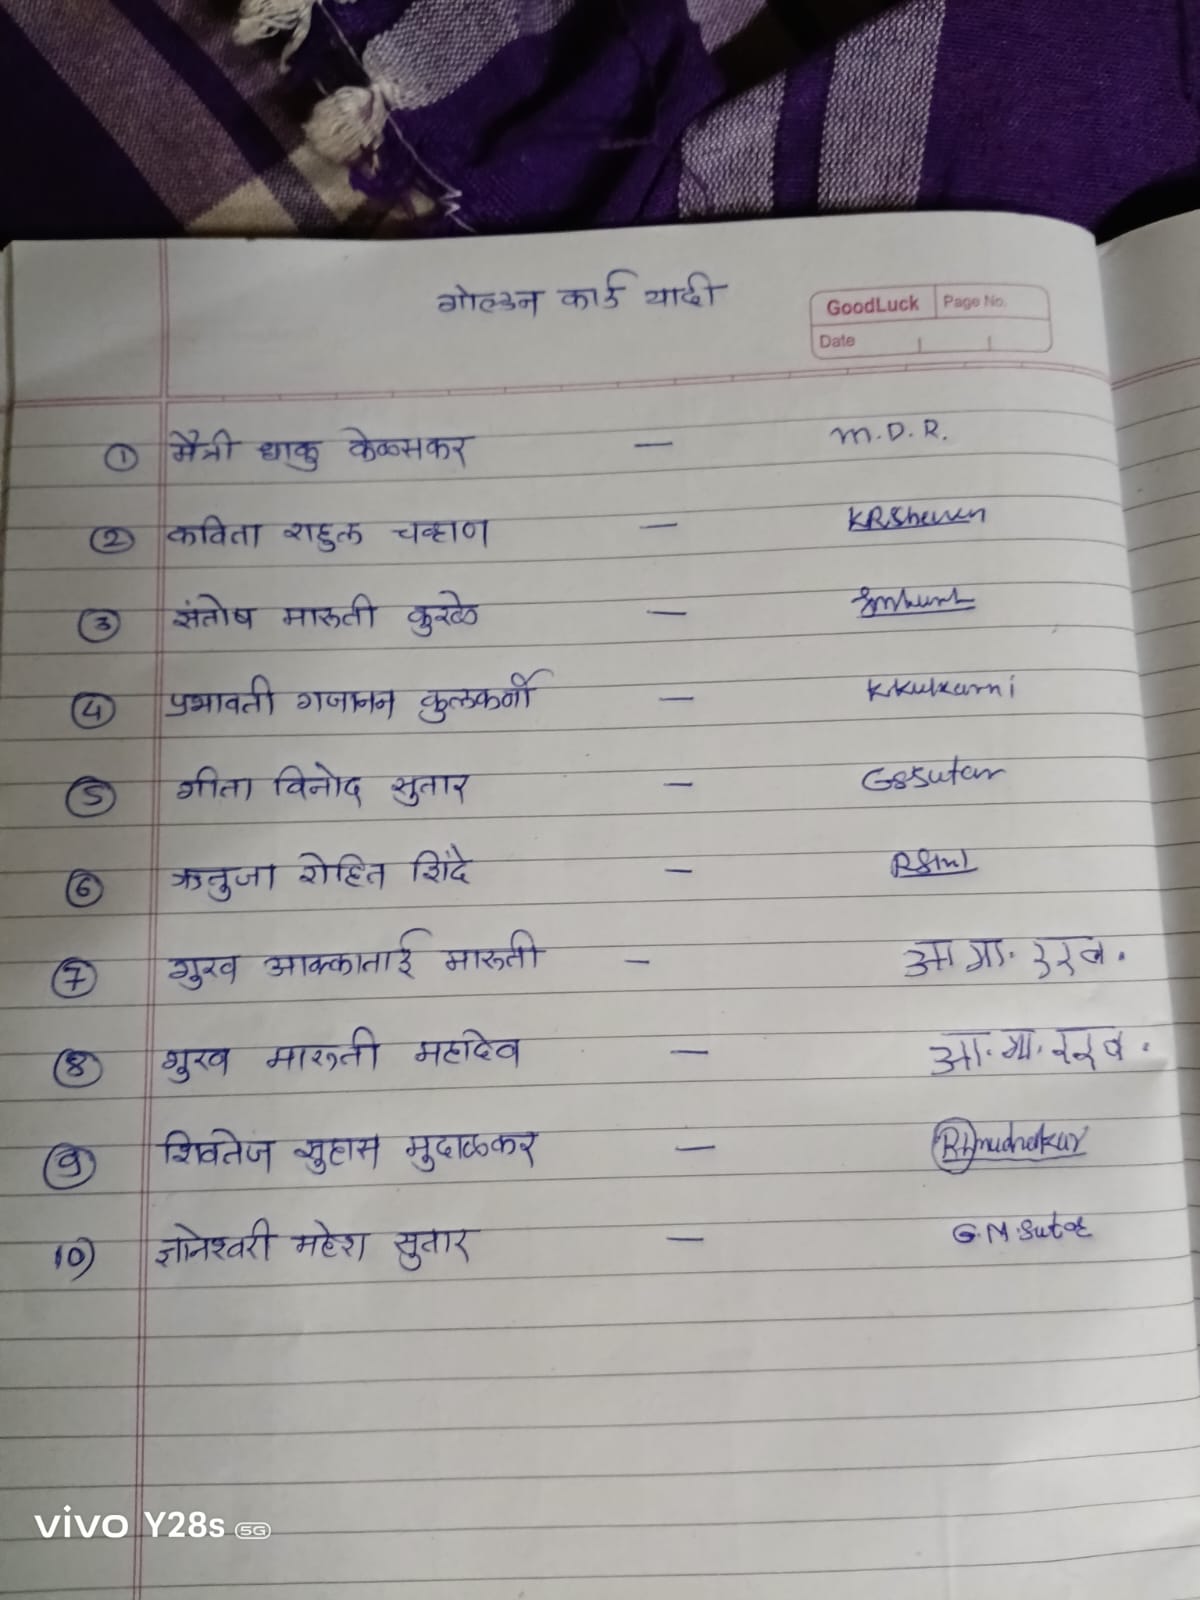 गोल्डन कार्ड यादी
GoodLuck Page No.
Date
① मैत्री धाकु केळसकर — M.D.R.
② कविता राहुल चव्हाण —
③ संतोष मारुती कुरळे —
④ प्रभावती गजानन कुलकर्णी — K.Kulkarni
⑤ गीता विनोद सुतार — GSSutar
⑥ ऋतुजा रोहित शिंदे —
⑦ गुरव आक्काताई मारुती —
⑧ गुरव मारुती महादेव —
⑨ शिवतेज सुहास मुदाळकर —
10) ज्ञानेश्वरी महेश सुतार — G.M.Sutar
vivo Y28s 5G